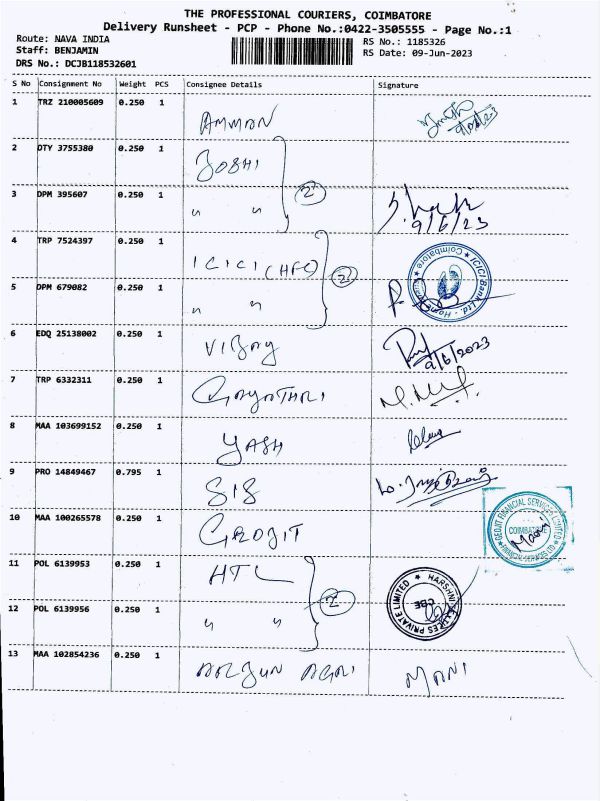 THE PROFESSIONAL COURIERS, COIMBATORE
Delivery Runsheet - PCP - Phone No.:0422-3505555 - Page No.:1
Route: NAVA INDIA
RS No.: 1185326
Staff: BENJAMIN
RS Date: 09-Jun-2023
DRS No.: DCJB118532601
S No Consignment No Weight PCS Consignee Details Signature
1 TRZ 210005609 0.250 1 AMMAN
2 DTY 3755380 0.250 1 JOSHI
2
3 DPM 395607 0.250 1 " "
9/6/23
4 TRP 7524397 0.250 1 ICICI (HFC)
2
ICICI Bank Ltd. Coimbatore
5 DPM 679082 0.250 1 " "
6 EDQ 25138002 0.250 1 VIJAY
9/6/2023
7 TRP 6332311 0.250 1 GAYATHRI
8 MAA 103699152 0.250 1 YASH
9 PRO 14849467 0.795 1 SIS
10 MAA 100265578 0.250 1 GEOJIT
GEOJIT FINANCIAL SERVICES LIMITED
COIMBATORE
11 POL 6139953 0.250 1 HTL
2
HARSHNI PRIVATE LIMITED
CBE
12 POL 6139956 0.250 1 " "
13 MAA 102854236 0.250 1 ARJUN AGRI MANI